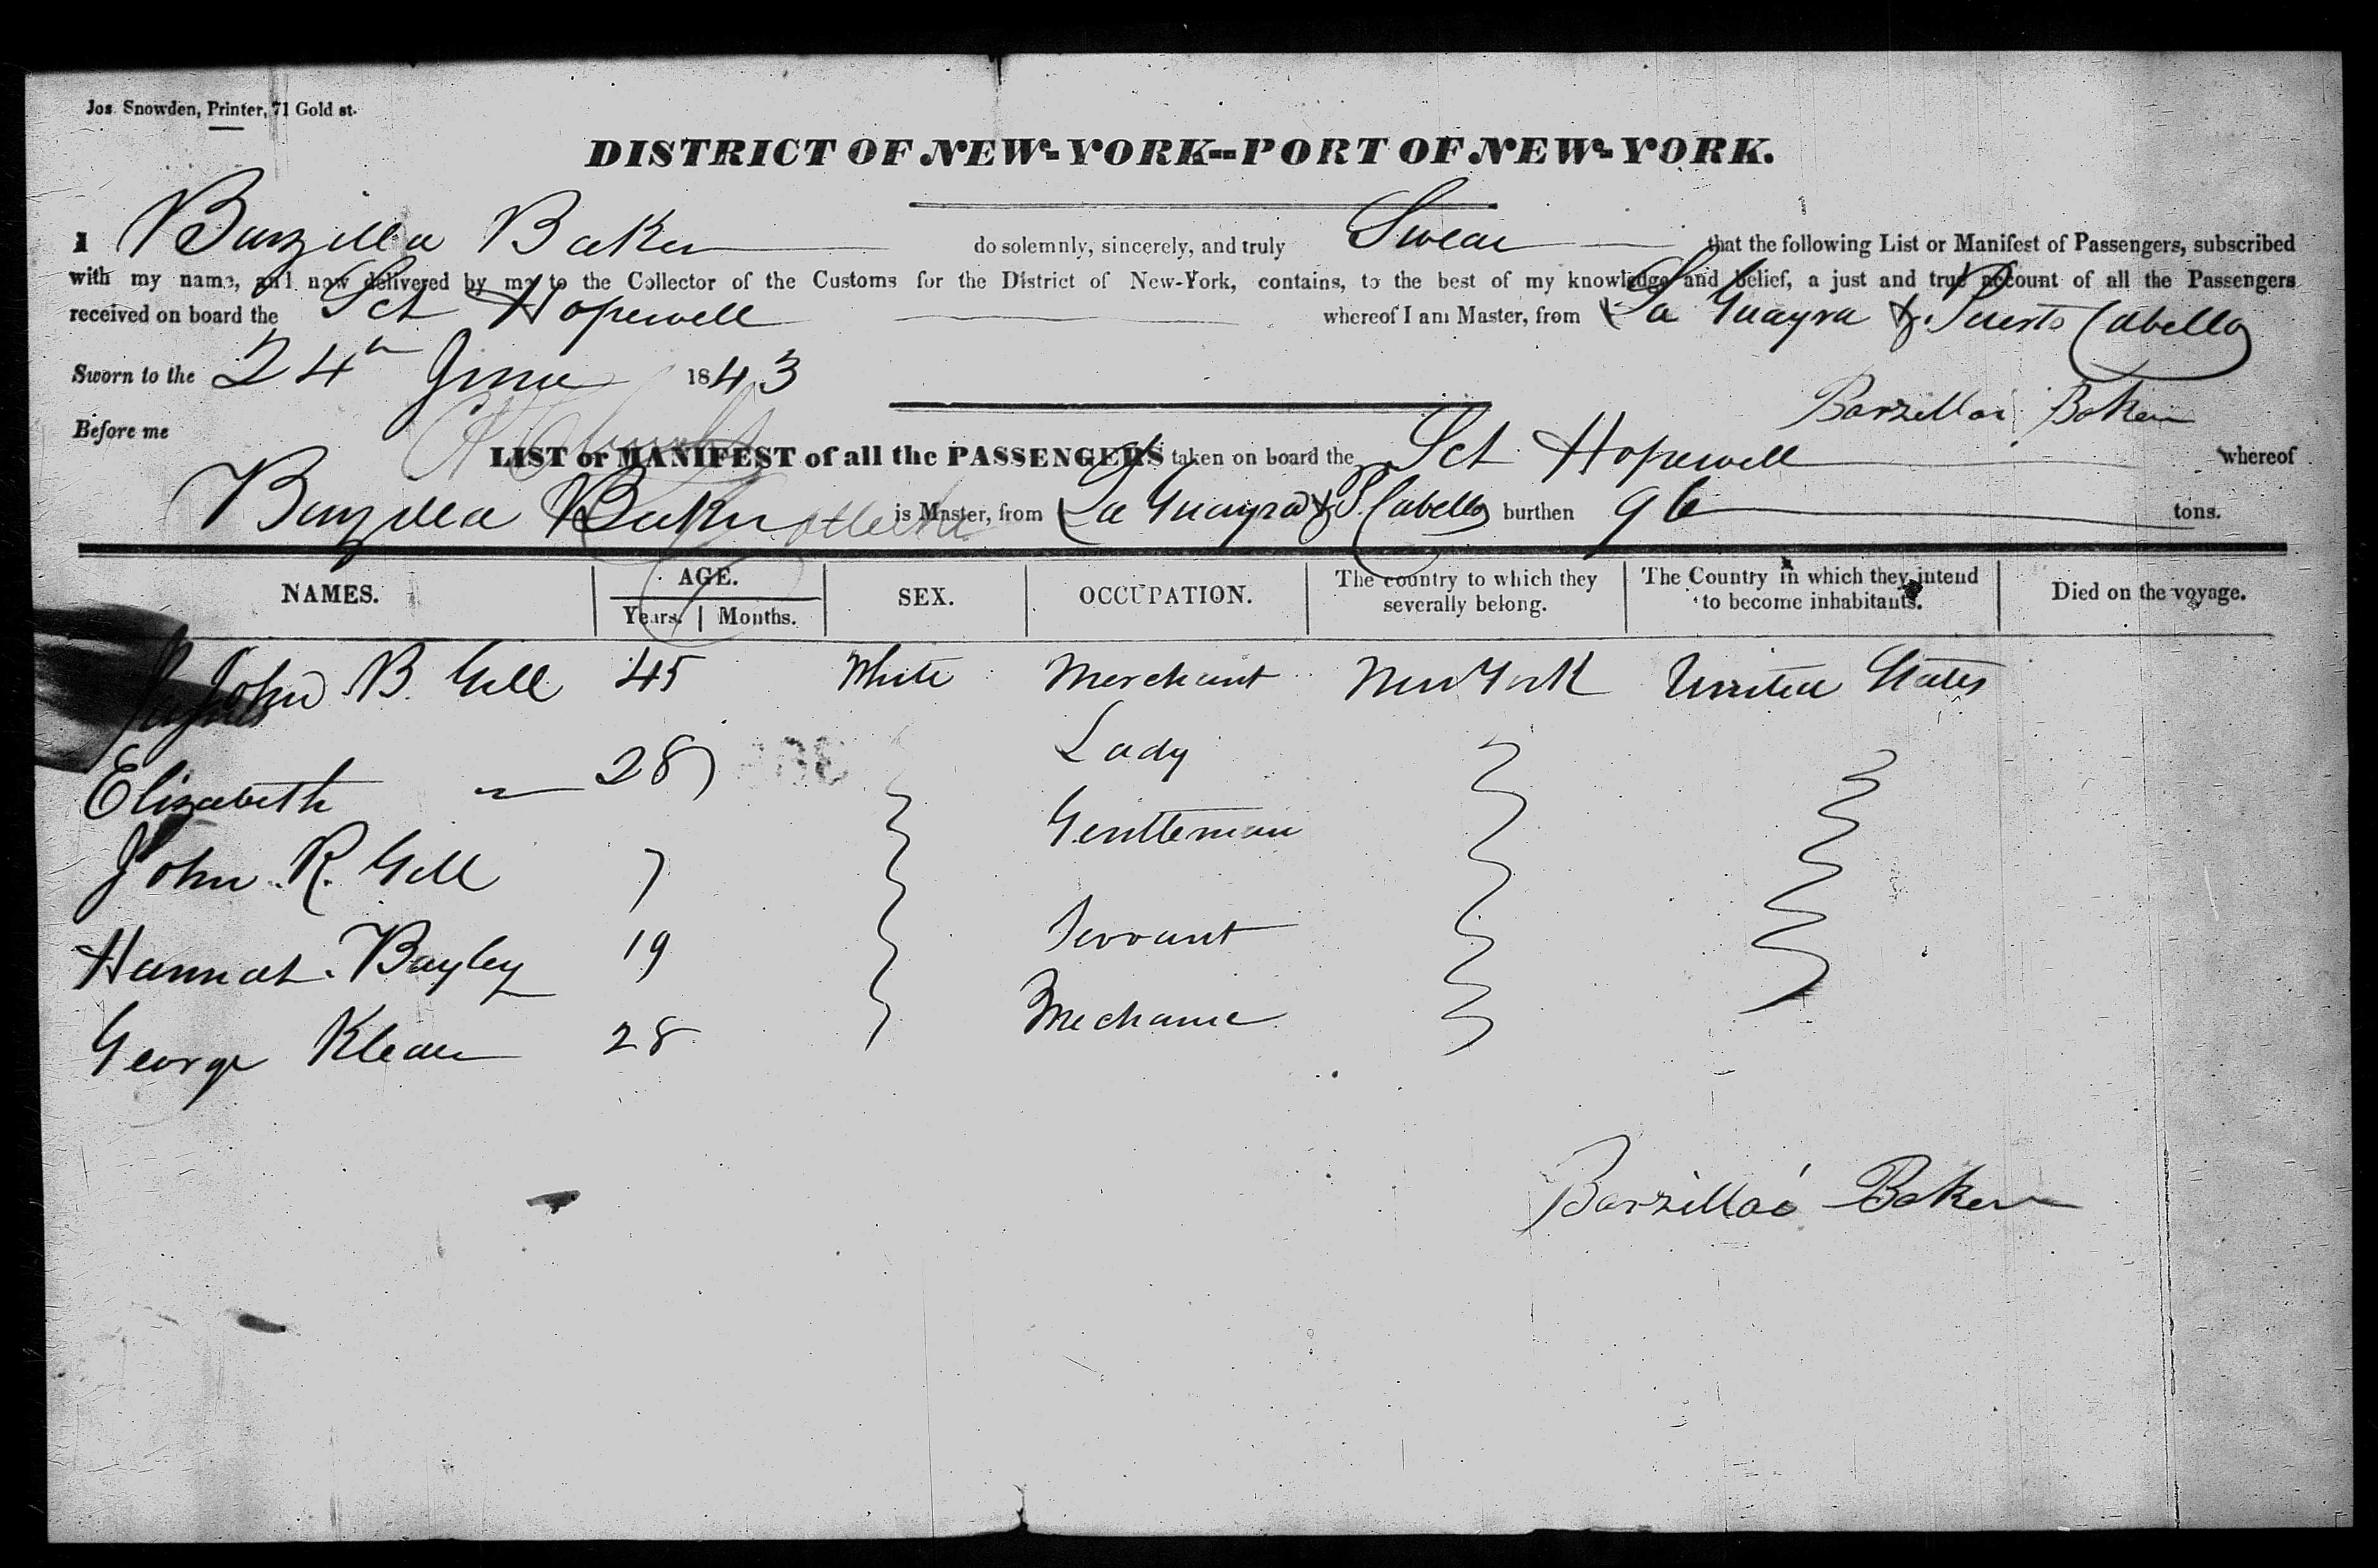 Jos. Snowden, Printer, 71 Gold st.
DISTRICT OF NEW-YORK--PORT OF NEW-YORK.
I Barzilla Baker do solemnly, sincerely, and truly Swear that the following List or Manifest of Passengers, subscribed
with my name, and now delivered by me to the Collector of the Customs for the District of New-York, contains, to the best of my knowledge and belief, a just and true account of all the Passengers
received on board the Sch Hopewell whereof I am Master, from La Guayra & Puerto Cabello
Sworn to the 24th June 1843
Barzillai Baker
Before me
LIST or MANIFEST of all the PASSENGERS taken on board the Sch Hopewell whereof
Barzilla Baker is Master, from La Guayra & P. Cabello burthen 96 tons.
NAMES. AGE. Years. Months. SEX. OCCUPATION. The country to which they severally belong. The Country in which they intend to become inhabitants. Died on the voyage.
John B. Gill 45 White Merchant New York United States
Elizabeth " 28 Lady
John R. Gill 7 Gentleman
Hannah Bayley 19 Servant
George 28 Mechanic
Barzillai Baker